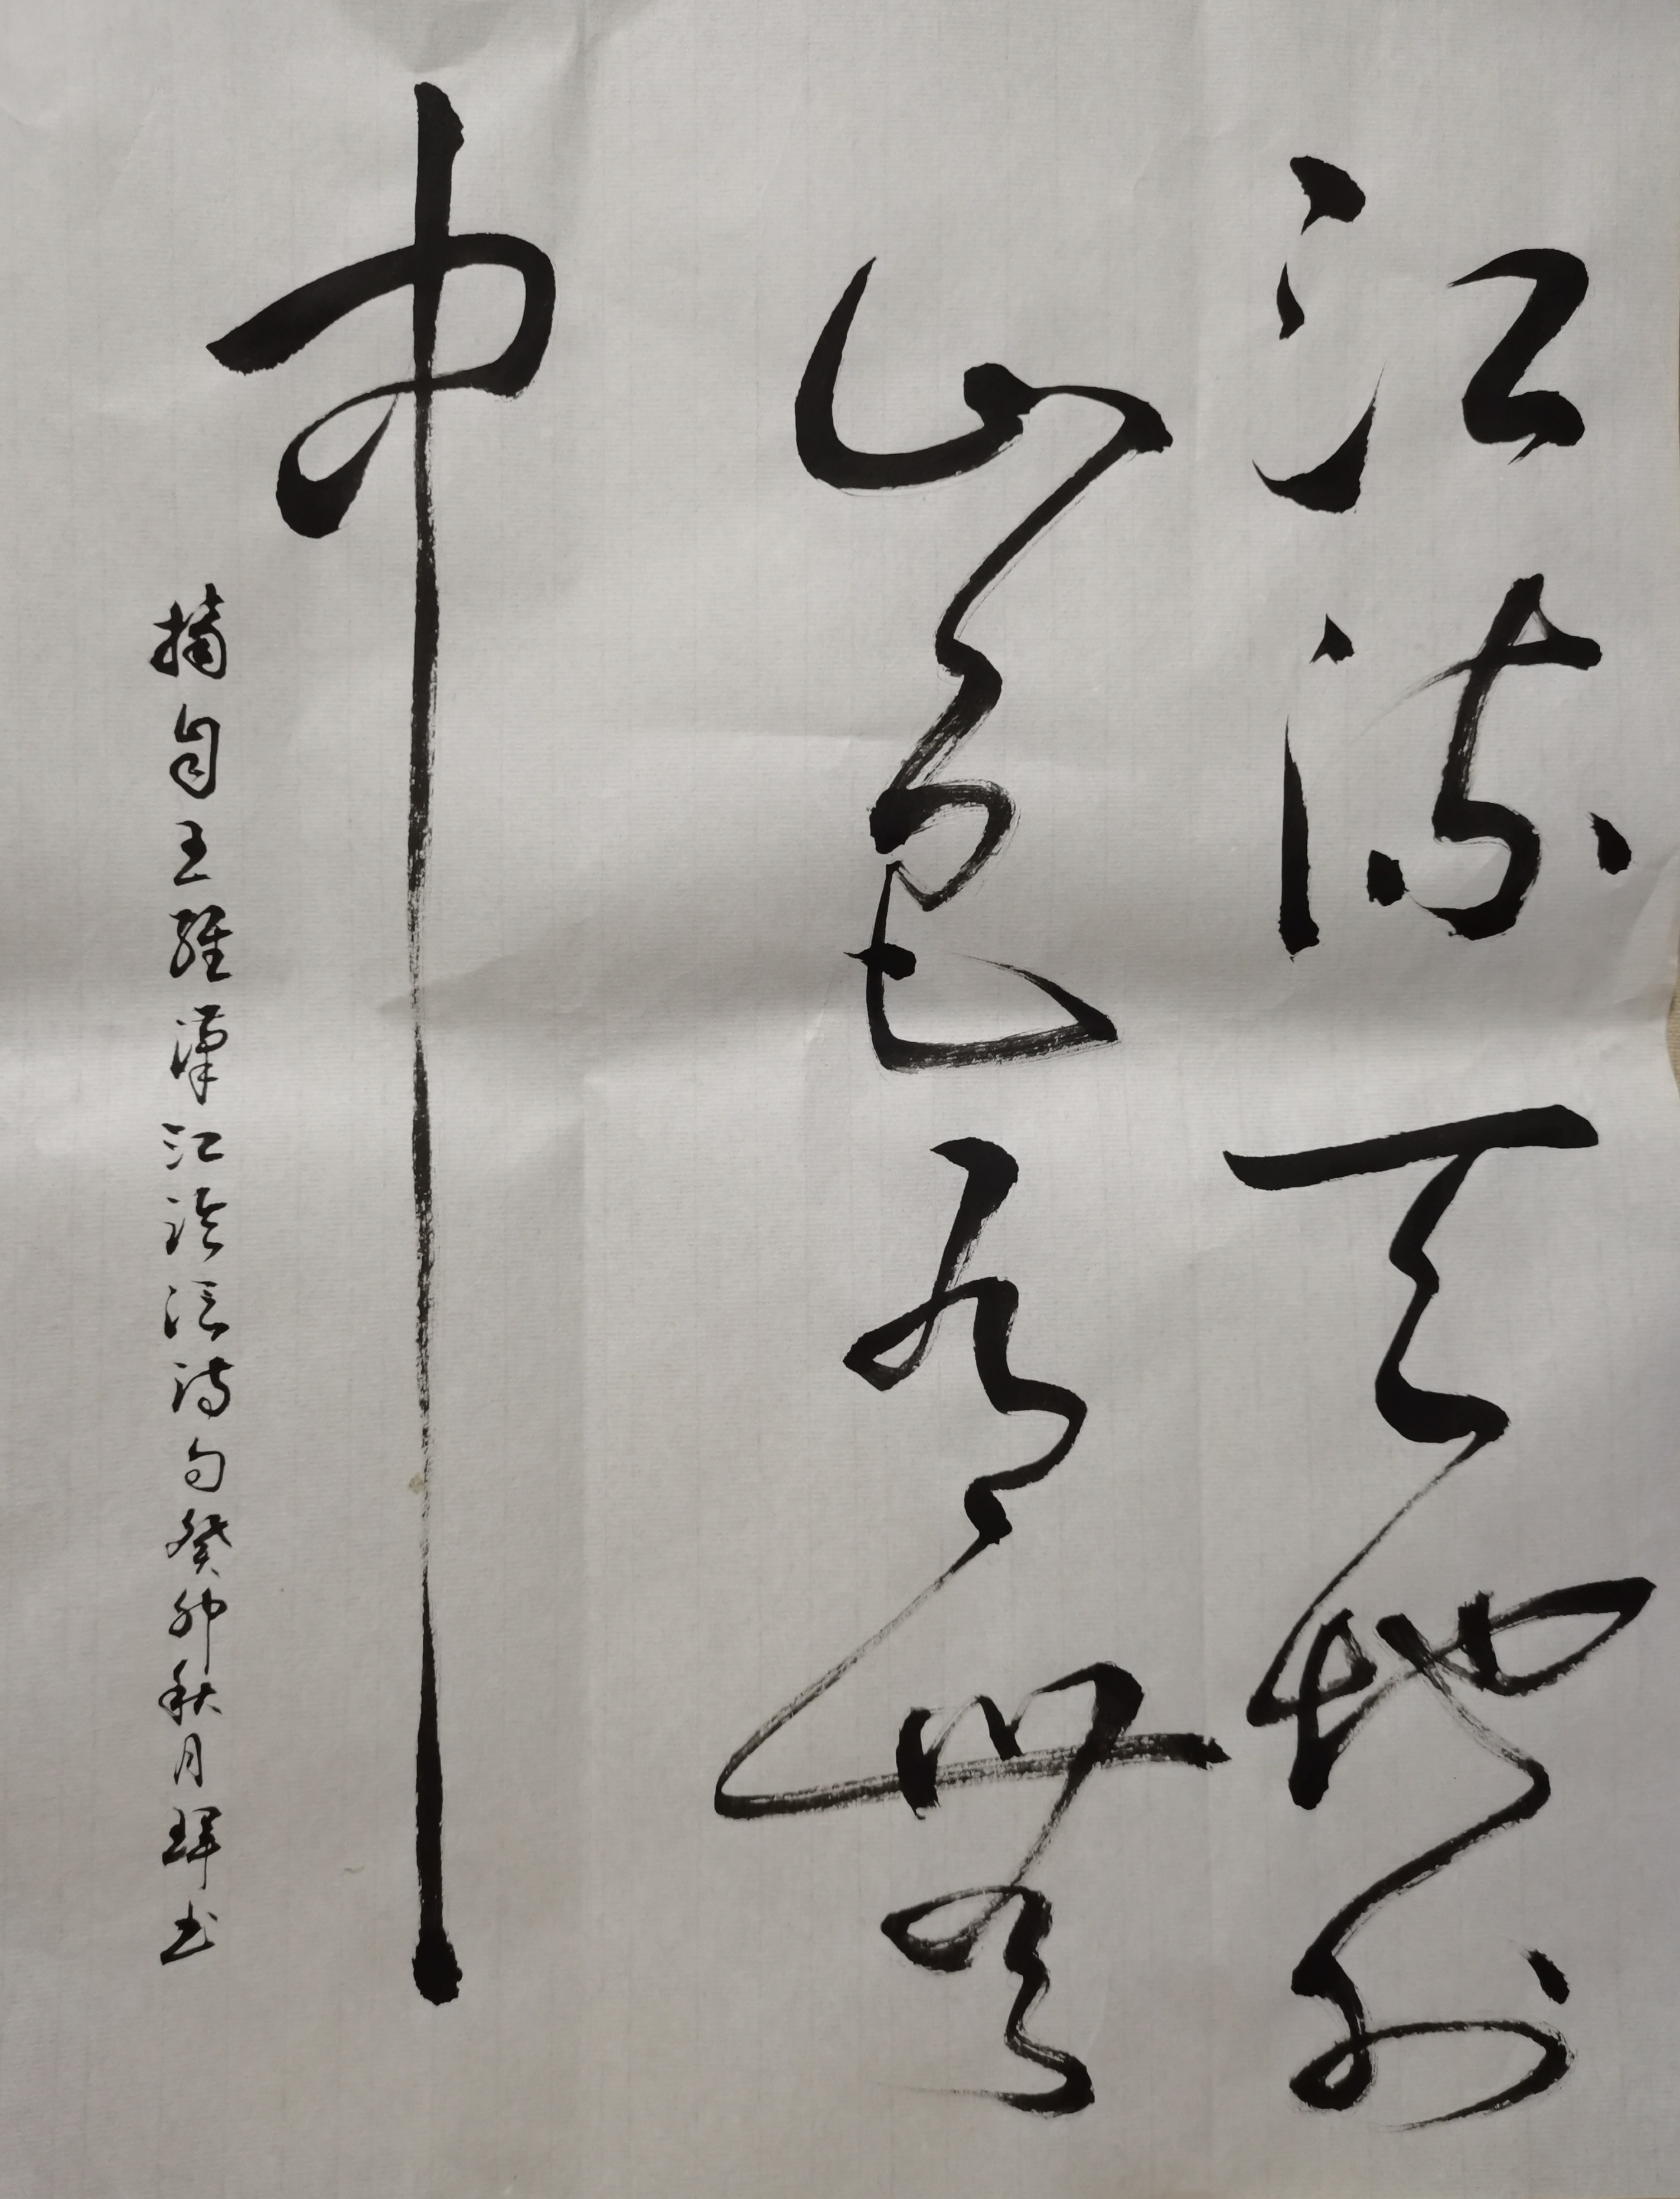 江流天地外
山色有無
中
摘自王維漢江临泛詩句癸卯秋月珲书